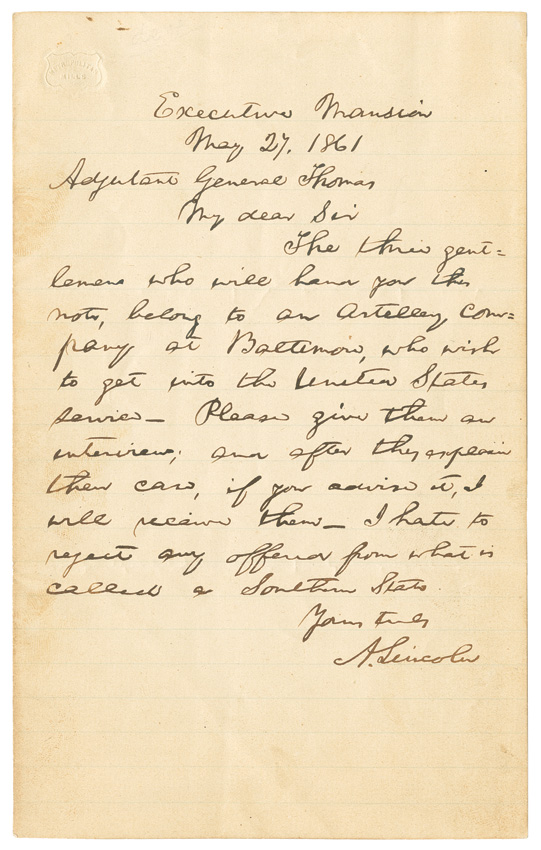 Executive Mansion
May 27, 1861
Adjutant General Thomas
My dear Sir
The three gent=
lemen who will hand you this
note, belong to an Artillery, Com=
pany at Baltimore, who wish
to get into the United States
service— Please give them an
interview; and after they explain
their case, if you advise it, I
will receive them— I hate to
reject any offered from what is
called a Southern State.
Yours truly
A. Lincoln